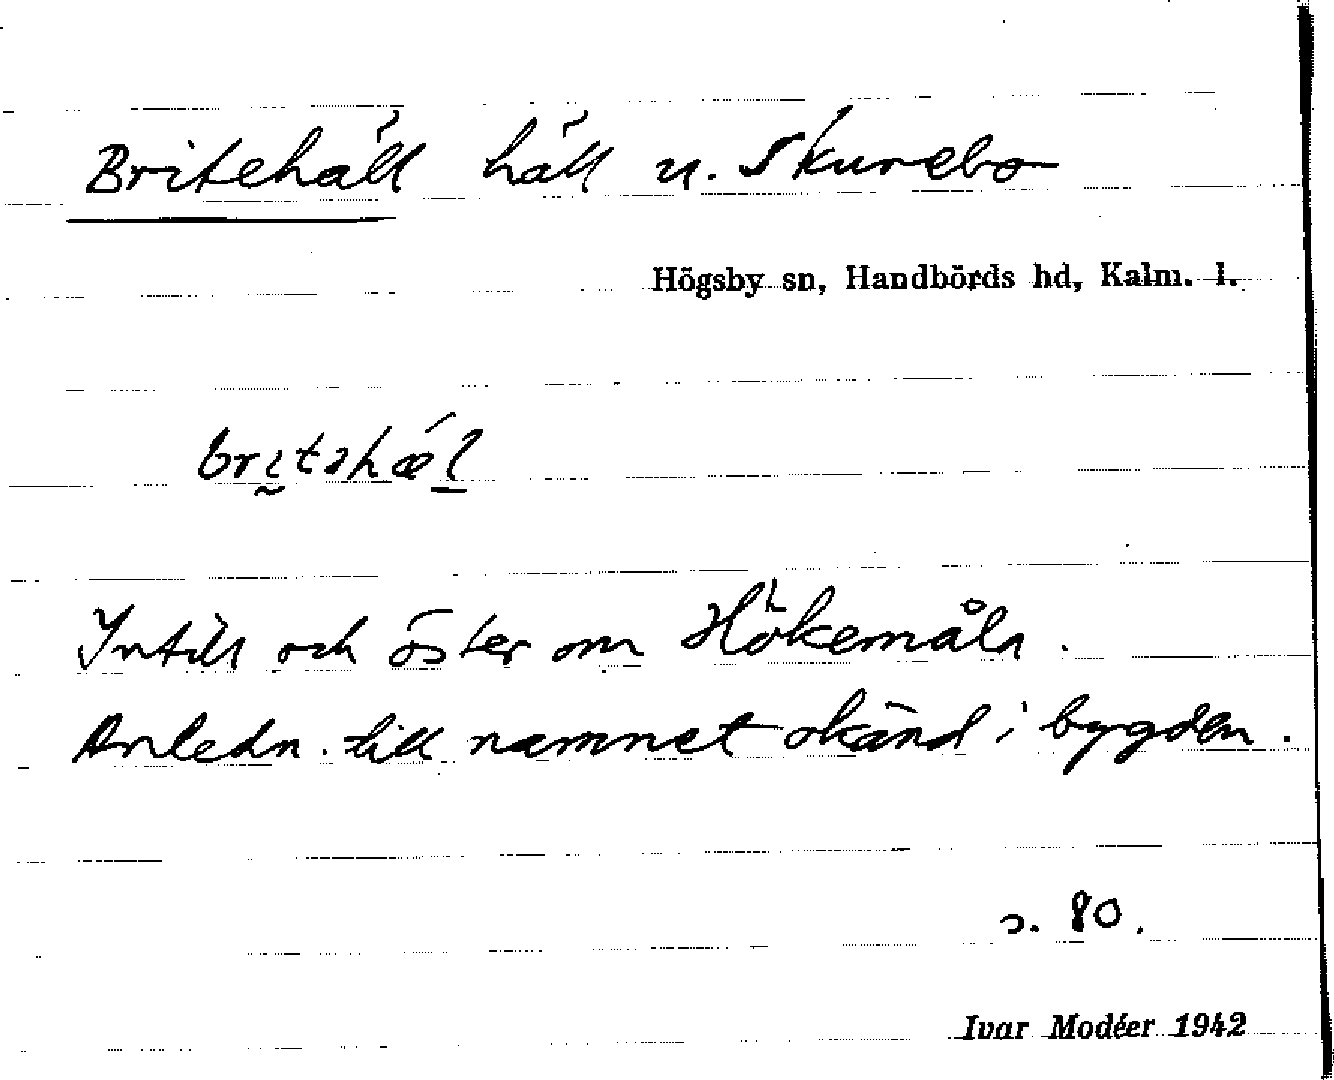 Britehäll häll u. Skurebo
Högsby sn, Handbörds hd, Kalm. l.
britəhæ´l
Intill och öster om Hökemåla.
Anledn. till namnet okänd i bygden.
s. 80.
Ivar Modéer 1942